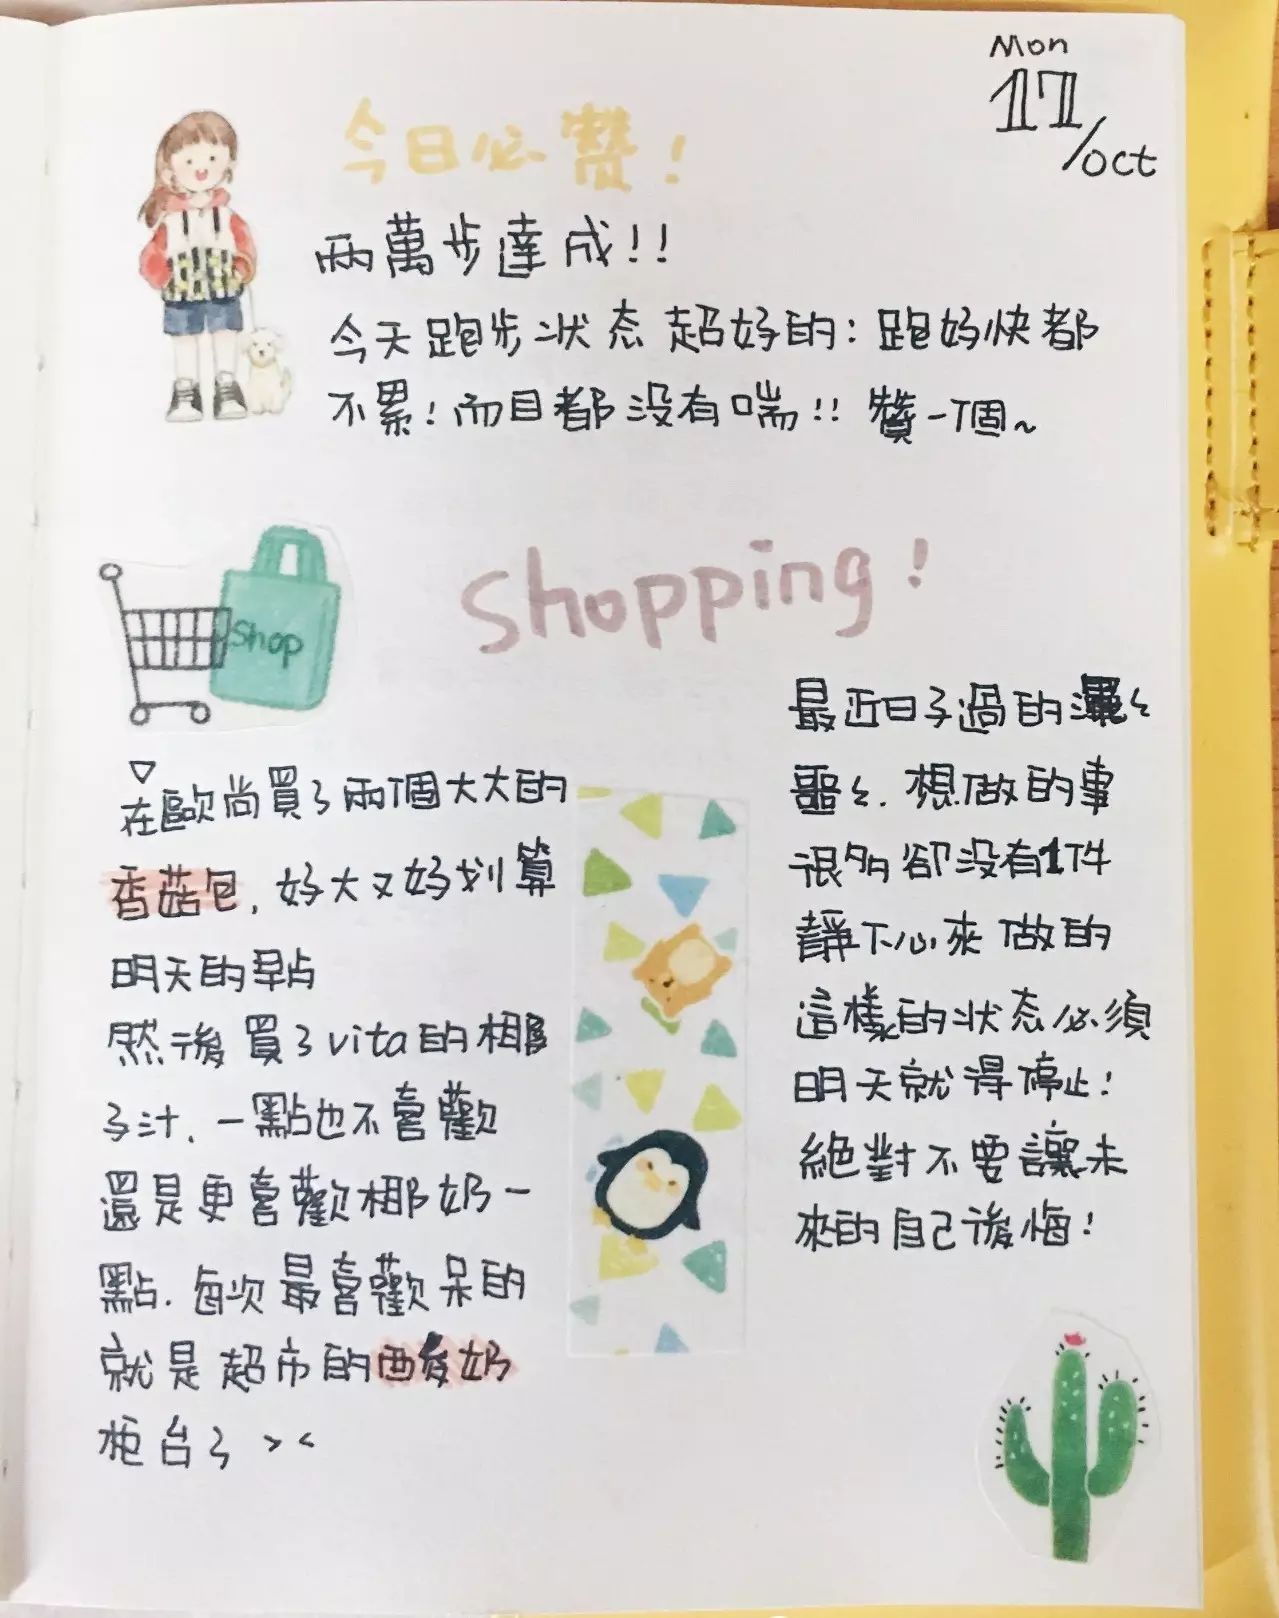 Mon
17/oct
今日必赞!
两萬步達成!!
今天跑步状态超好的:跑好快都
不累!而且都没有喘!!赞一個~
Shopping!
Shop
▽
在歐尚買了兩個大大的
香菇包,好大又好划算
明天的早点
然後買了vita的椰
子汁、一點也不喜歡
還是更喜歡椰奶一
點.每次最喜歡呆的
就是超市的酸奶
柜台了 ><
最近日子過的渾々
噩々.想做的事
很多卻没有1件
靜下心來做的
這樣的状态必須
明天就得停止!
絕對不要讓未
來的自己後悔!